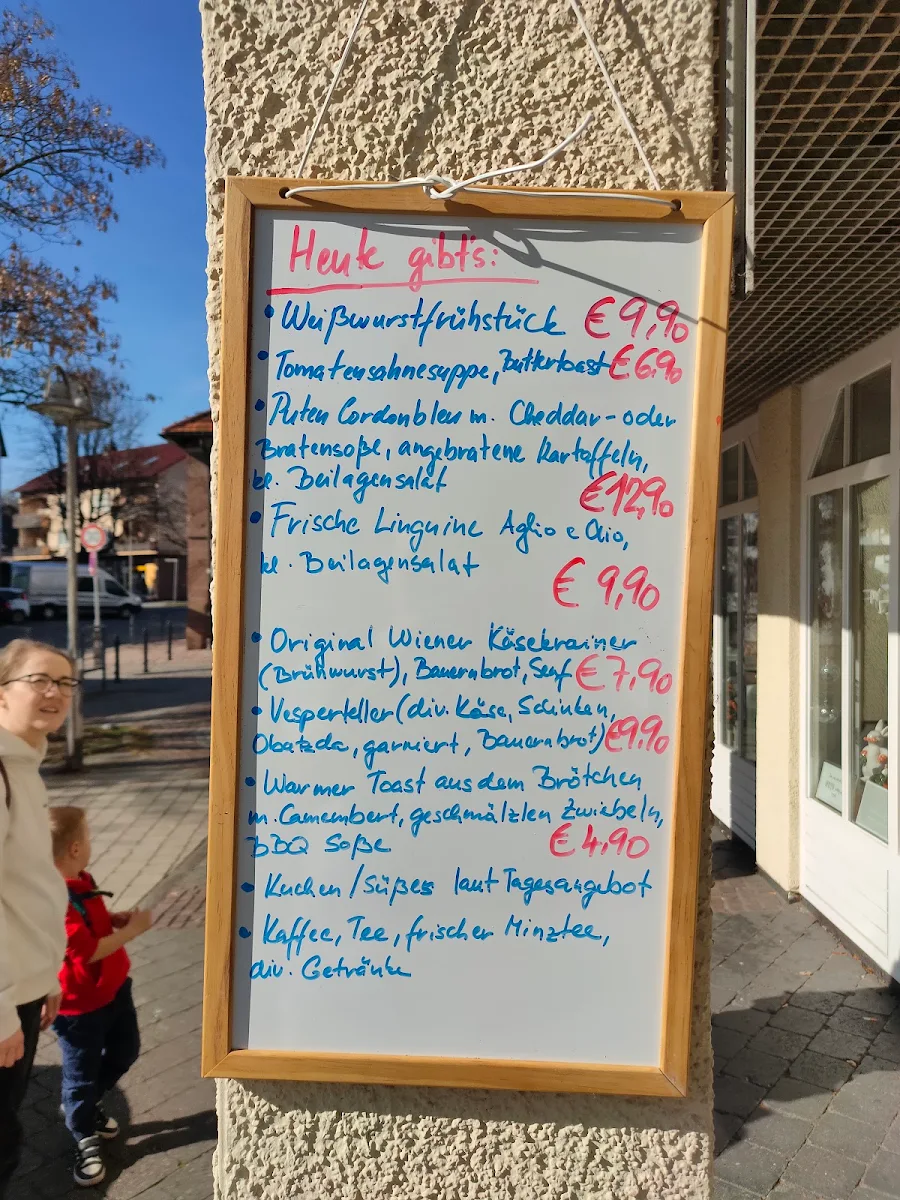 Heute gibt's:
• Weißwurstfrühstück €9,90
• Tomatensahnesuppe, Buttertoast €6,90
• Puten Cordonbleu m. Cheddar- oder
Bratensoße, angebratene Kartoffeln,
kl. Beilagensalat €12,90
• Frische Linguine Aglio e Olio,
kl. Beilagensalat
€ 9,90
• Original Wiener Käsekrainer
(Brühwurst), Bauernbrot, Senf €7,90
• Vesperteller (div. Käse, Schinken,
Obatzda, garniert, Bauernbrot) €9,90
• Warmer Toast aus dem Brötchen
m. Camembert, geschmälzten Zwiebeln,
BBQ Soße € 4,90
• Kuchen/Süßes laut Tagesangebot
• Kaffee, Tee, frischer Minztee,
div. Getränke